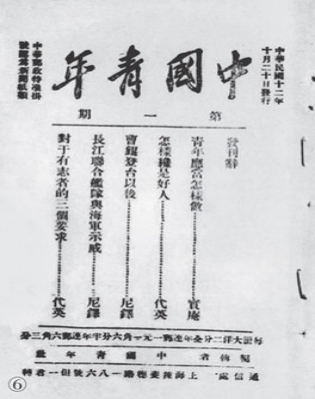 中華民國十二年
十月二十日發行
中國青年
中華郵政特准掛
號認爲新聞紙類
第一期
發刊辭
青年應當怎樣做………實庵
怎樣纔是好人………代英
曹錕登台以後………尼鐸
長江聯合艦隊與海軍示威………尼鐸
對于有志者的三個要求………代英
每訂大洋二分全年連郵一元一角六分半年連郵六角三分
編輯者 中國青年社
通信處 上海辣斐德路一八六號但一君轉
⑥